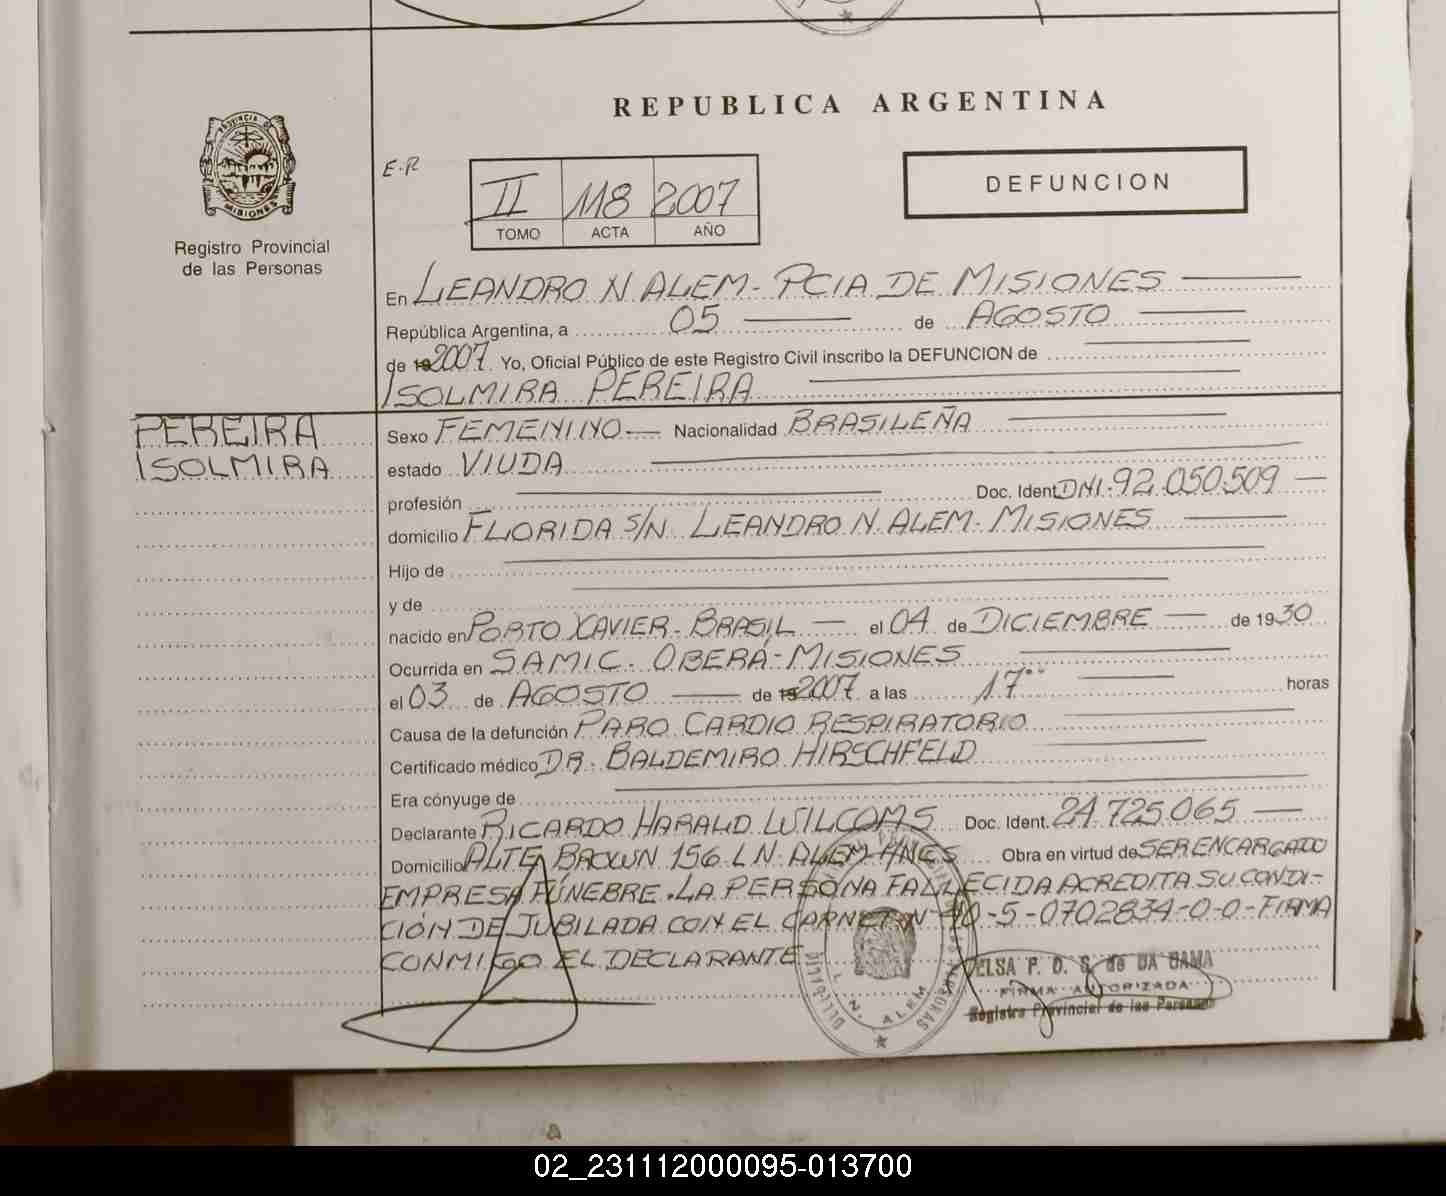 REPUBLICA ARGENTINA
PROVINCIA DE
MISIONES
Registro Provincial
de las Personas
E.R
II 118 2007
TOMO ACTA AÑO
DEFUNCION
En LEANDRO N ALEM - PCIA DE MISIONES
República Argentina, a 05 de AGOSTO
de 19 2007. Yo, Oficial Público de este Registro Civil inscribo la DEFUNCION de
ISOLMIRA PEREIRA
PEREIRA
ISOLMIRA
Sexo FEMENINO Nacionalidad BRASILEÑA
estado VIUDA
profesión Doc. Ident. DNI. 92.050.509
domicilio FLORIDA S/N. LEANDRO N. ALEM. MISIONES
Hijo de
y de
nacido en PORTO XAVIER - BRASIL el 04 de DICIEMBRE de 1930
Ocurrida en SAMIC. OBERÁ - MISIONES
el 03 de AGOSTO de 19 2007 a las 17 horas
Causa de la defunción PARO CARDIO RESPIRATORIO
Certificado médico DR. BALDEMIRO HIRSCHFELD
Era cónyuge de
Declarante RICARDO HARALD WILCOMS Doc. Ident. 24.725.065
Domicilio ALTE BROWN 156 L N. ALEM - MNES Obra en virtud de SER ENCARGADO
EMPRESA FÚNEBRE. LA PERSONA FALLECIDA ACREDITA SU CONDI-
CIÓN DE JUBILADA CON EL CARNET Nº 40-5-0702834-0-0- FIRMA
CONMIGO EL DECLARANTE
L. N. ALEM
ELSA P. D. S. de DA GAMA
FIRMA AUTORIZADA
Registro Provincial de las Personas
02_231112000095-013700